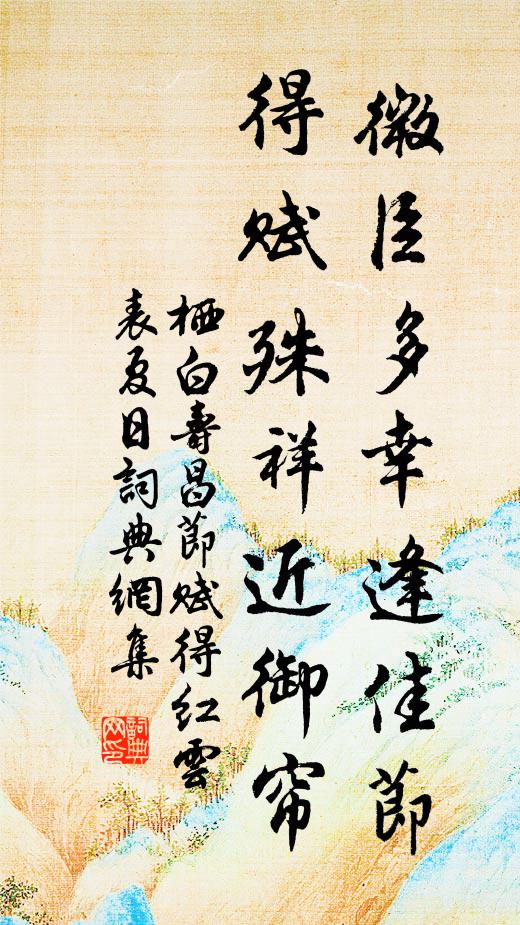 微臣多幸逢佳節
得賦殊祥近御帘
栖白壽昌節賦得紅雲
表夏日詞典網集
詞典
网印